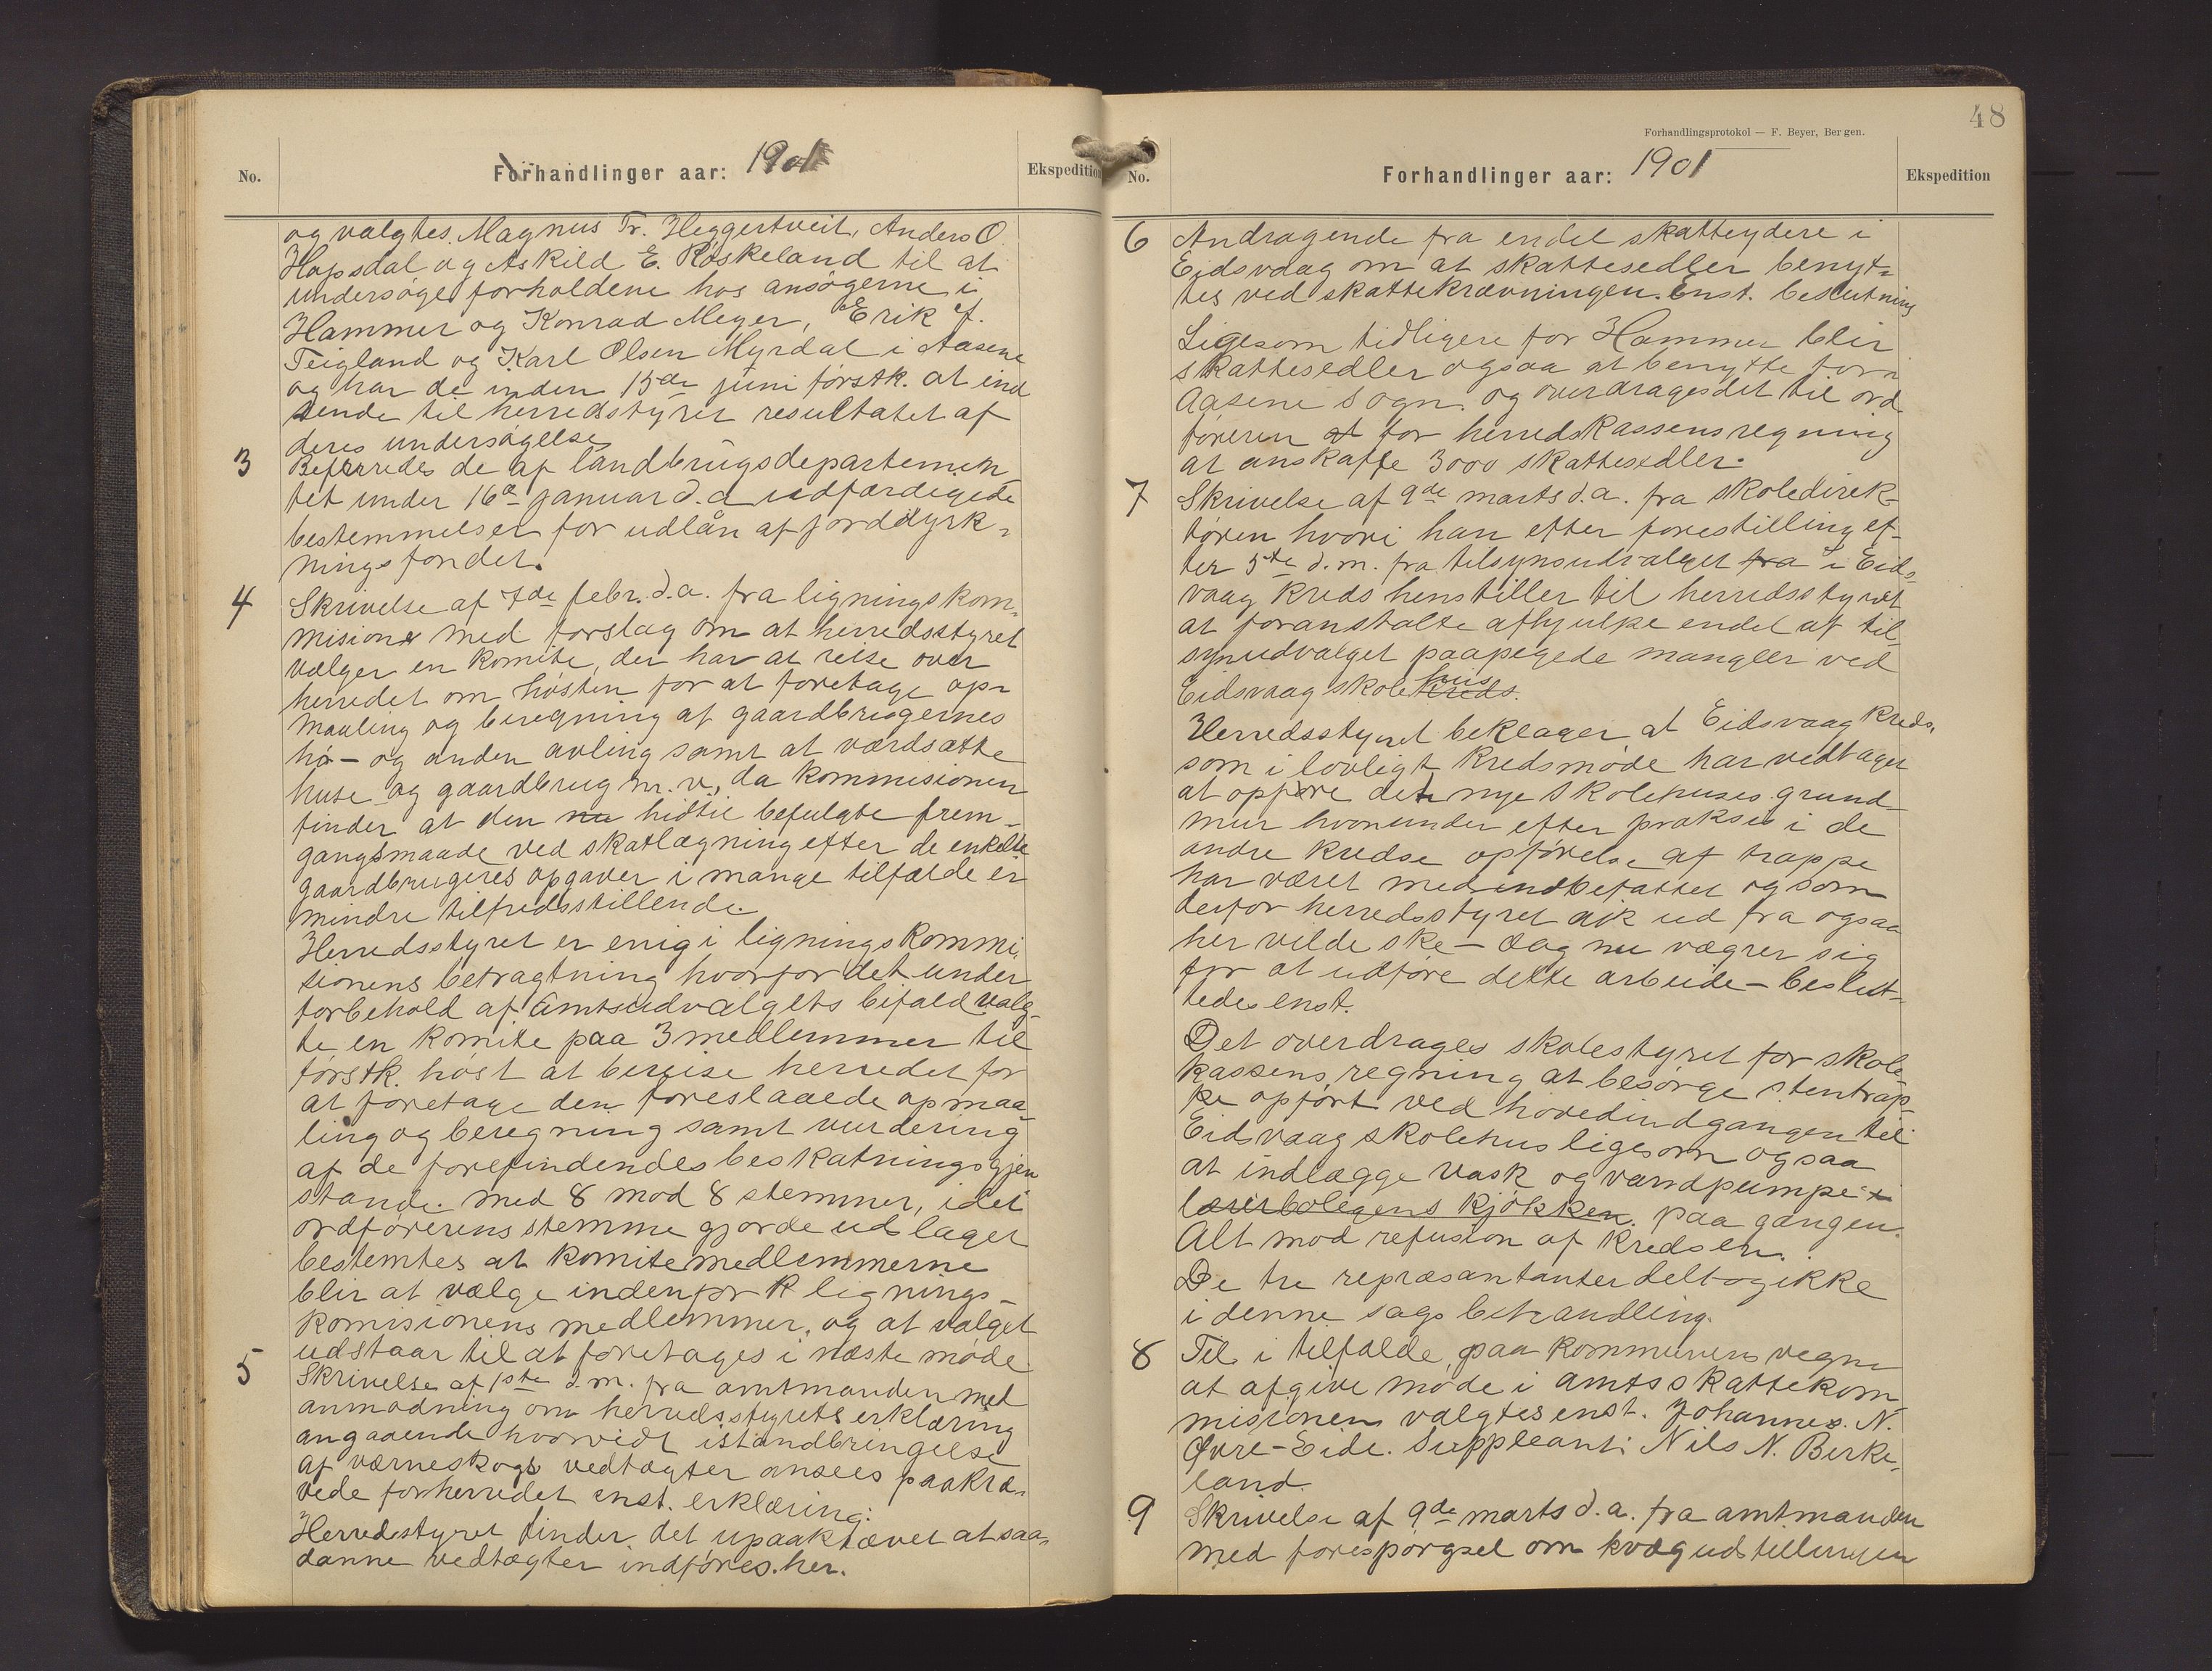 No.
Forhandlinger aar: 1901
Ekspedition
og valgtes Magnus Tr. Heggertveit, Anders O
Hopsdal og Askild E. Røskeland til at
undersøge forholdene hos ansøgerne i
Hammer og Konrad Meyer, Erik A.
Teigland og Karl Olsen Myrdal i Aasene
og har de inden 15de juni førstk. at ind
sende til herredstyret resultatet af
deres undersøgelse
3 Refereredes de af landbrugsdepartemen
tet under 16de januar d.a udfærdigede
bestemmelser for udlån af jorddyrk-
ningsfondet.
4 Skrivelse af 7de febr. d.a. fra ligningskom-
misione med forslag om at herredsstyret
vælger en komite, der har at reise over
herredet om høsten for at foretage op-
maaling og beregning af gaardbrugernes
hø- og anden avling samt at værdsætte
huse og gaardbrug m.v., da kommisionen
finder at den nu hidtil befulgte frem-
gangsmaade ved skatlægning efter de enkelte
gaardbrugeres opgaver i mange tilfælde er
mindre tilfredsstillende.
Herredsstyret er enig i ligningskommi-
sionens betragtning hvorfor det under
forbehold af Amtsudvalgets bifald valg-
te en komite paa 3 medlemmer til
førstk. høst at bereise herredet for
at foretage den foreslaaede opmaa-
ling og beregning samt vurdering
af de forefindendes beskatningsgjen
stande. Med 8 mod 8 stemmer, idet
ordførerens stemme gjorde udslaget
bestemtes at komitemedlemmerne
blir at vælge indenfor k lignings-
komisionens medlemmer, og at valget
udstaar til at foretages i næste møde
5 Skrivelse af 1ste d.m. fra amtmanden med
anmodning om herredsstyrets erklæring
angaaende hvorvidt istandbringelse
af værneskogs vedtægter ansees paakræ-
vede for herredet enst. erklæring:
Herredsstyret finder det upaakrævet at saa-
danne vedtægter indføres her.
48
Forhandlingsprotokol — F. Beyer, Bergen.
No.
Forhandlinger aar: 1901
Ekspedition
6 Andragende fra endel skatteydere i
Eidsvaag om at skattesedler benyt-
tes ved skattekrævningen. Enst. beslutning
Ligesom tidligere for Hammer blir
skattesedler ogsaa at benytte for
Aasene sogn og overdrages det til ord
føreren at for herredskassens regning
at anskaffe 3000 skattesedler.
7 Skrivelse af 9de marts d.a. fra skoledirek-
tøren hvori han efter forestilling ef-
ter 5te d.m. fra tilsynsudvalget fra i Eids-
vaag kreds henstiller til herredsstyret
at foranstalte afhjulpe endel af til
synudvalget paapegede mangler ved
Eidsvaag skole kreds hus.
Herredsstyret beklager at Eidsvaag kreds,
som i lovligt kredsmøde har vedtaget
at opføre det nye skolehuses grund
mur hvorunder efter praksis i de
andre kredse opførelse af trappe
har været medindbefattet og som
derfor herredsstyret gik ud fra ogsaa
her vilde ske - dog nu vægrer sig
for at udføre dette arbeide - beslut-
tedes enst.
Det overdrages skolestyret for skole-
kassens regning at besørge stentrap-
pe opført ved hovedindgangen til
Eidsvaag skolehus ligesom ogsaa
at indlægge vask og vandpumpe i
lærerboligens kjøkken. paa gangen.
Alt mod refusion af kredsen.
De tre repræsantanter deltog ikke
i denne sags behandling.
8 Til i tilfælde, paa kommunens vegne
at afgive møde i amtsskattekom
misionen valgtes enst. Johannes N.
Øvre-Eide. Suppleant: Nils N. Birke-
land.
9 Skrivelse af 9de marts d.a. fra amtmanden
med forespørgsel om kvægudstillingen